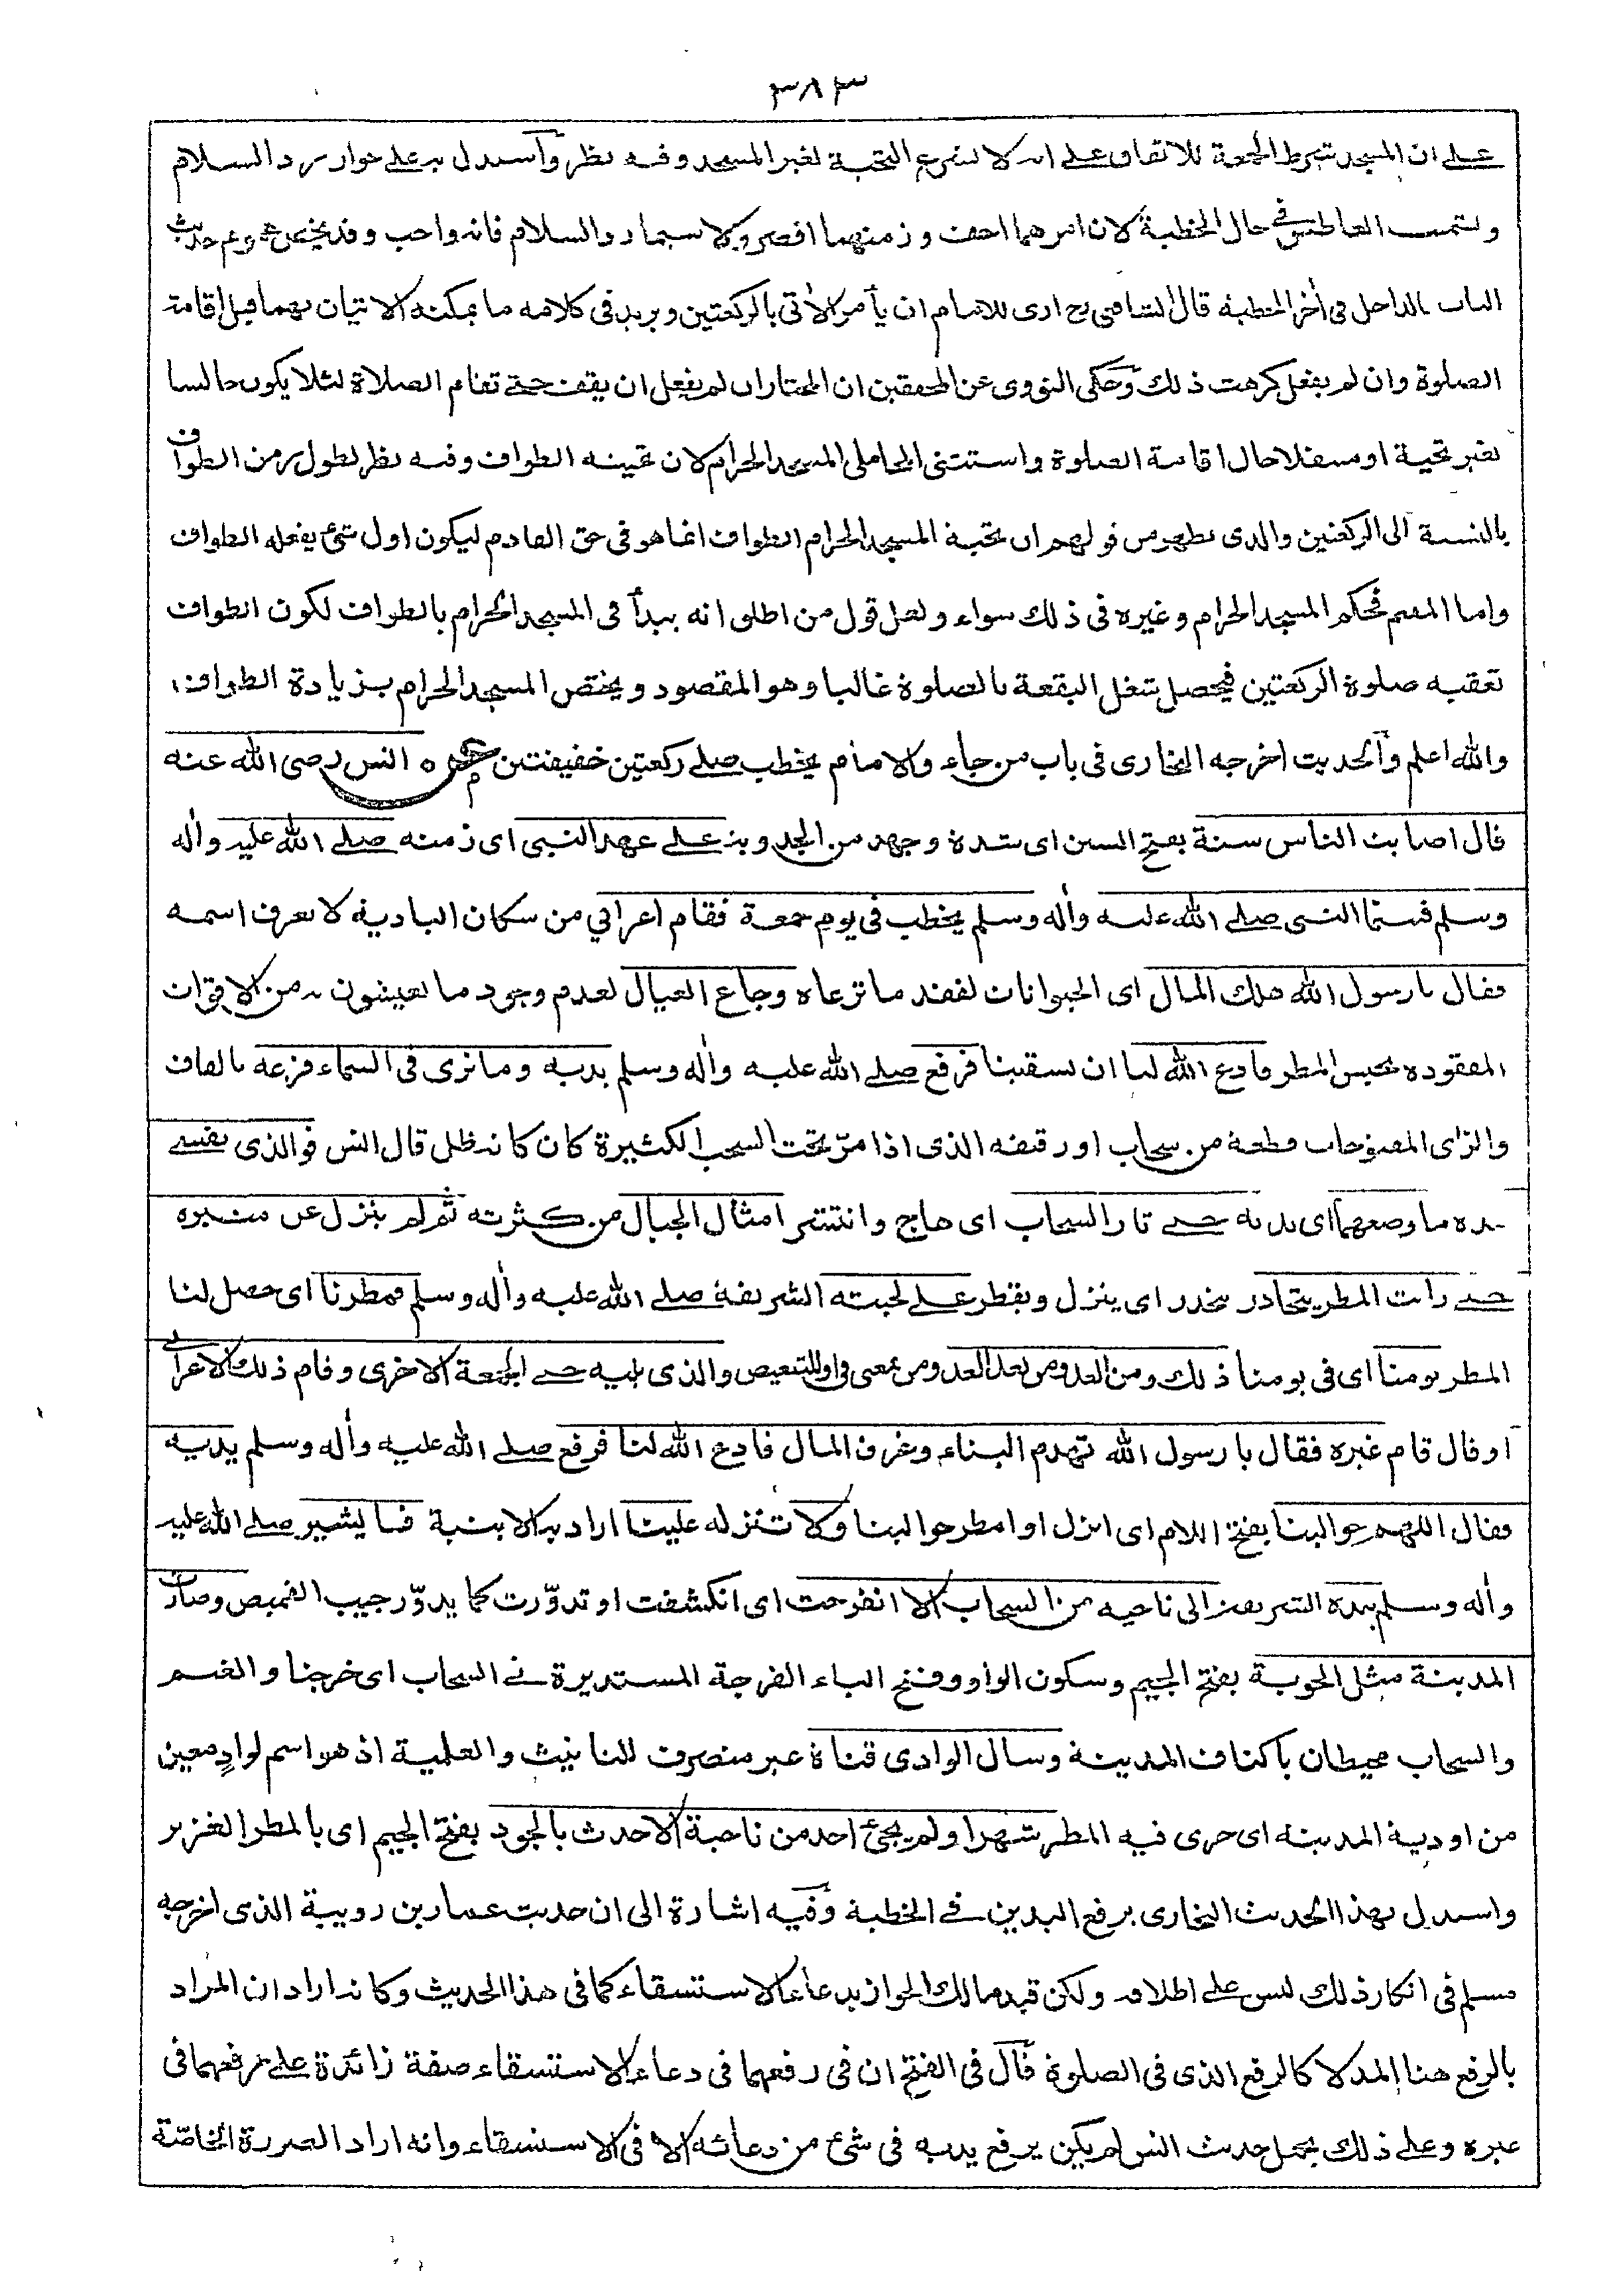 ٣٨٣
على ان المسجد شرط للجمعة للاتفاق على انه لا تشرع التحية لغير المسجد وفيه نظر وآستدل به على جواز رد السلام
وتشميت العاطس في حال الخطبة لان امرهما اخف وزمنهما اقصر ولا سيما رد السلام فانه واجب وقد يخص عموم حديث
الباب بالداخل في أخر الخطبة قال الشافعي رح ارى للامام ان يأمر الأتى بالركعتين ويريد في كلامه ما يمكنه الاتيان بهما قبل اقامة
الصلوة وان لم يفعل كرهت ذلك وحكى النووى عن المحققين ان المختار ان لم يفعل ان يقف حتى تقام الصلاة لئلا يكون جالسا
بغير تحية او متنفلا حال اقامة الصلوة واستثنى المحاملى المسجد الحرام لان تحيته الطواف وفيه نظر لطول زمن الطواف
بالنسبة الى الركعتين والذى يظهر من قولهم ان تحية المسجد الحرام الطواف انما هو في حق القادم ليكون اول شئ يفعله الطواف
واما المقيم فحكم المسجد الحرام وغيره في ذلك سواء ولعل قول من اطلق انه يبدأ في المسجد الحرام بالطواف لكون الطواف
تعقبه صلوة الركعتين فيحصل شغل البقعة بالصلوة غالبا وهو المقصود ويختص المسجد الحرام بزيادة الطواف
والله اعلم وآلحديث اخرجه البخارى في باب من جاء والامام يخطب صلے ركعتين خفيفتين عن انس رضى الله عنه
قال اصابت الناس سنة بفتح السين اى شدة وجهد من الجدوبة على عهد النبى اى زمنه صلے الله عليه وأله
وسلم فبينما النبى صلے الله عليه وأله وسلم يخطب في يوم جمعة فقام اعرابي من سكان البادية لا يعرف اسمه
فقال يا رسول الله هلك المال اى الحيوانات لفقد ما ترعاه وجاع العيال لعدم وجود ما يعيشون به من الاقوات
المفقودة بحبس المطر فادع الله لنا ان يسقينا فرفع صلے الله عليه وأله وسلم يديه وما نرى في السماء قزعة بالقاف
والزاى المفتوحات قطعة من سحاب او رقيقه الذى اذا مرّ تحت السحب الكثيرة كان كانه ظل قال انس فوالذى نفسے
بيده ما وضعهما اى يديه حتى ثار السحاب اى هاج وانتشر امثال الجبال من كثرته ثم لم ينزل عن منبره
حتى رأيت المطر يتحادر ينحدر اى ينزل ويقطر على لحيته الشريفة صلے الله عليه وأله وسلم فمطرنا اى حصل لنا
المطر يومنا اى في يومنا ذلك ومن الغد ومن بعد الغد ومن بمعنى في او للتبعيض والذى يليه حتى الجمعة الاخرى وقام ذلك الاعرابي
او قال قام غيره فقال يا رسول الله تهدم البناء وغرق المال فادع الله لنا فرفع صلے الله عليه وأله وسلم يديه
فقال اللهم حوالينا بفتح اللام اى انزل او امطر حوالينا ولا تنزله علينا اراد به الابنية فما يشير صلے الله عليه
وأله وسلم بيده الشريفة الى ناحية من السحاب الا انفرجت اى انكشفت او تدوّرت كما يدوّر جيب القميص وصارت
المدينة مثل الجوبة بفتح الجيم وسكون الواو وفتح الباء الفرجة المستديرة في السحاب اى خرجنا والغيم
والسحاب محيطان باكناف المدينة وسال الوادى قناة غير منصرف للتانيث والعلمية اذ هو اسم لوادٍ معين
من اودية المدينة اى جرى فيه المطر شهرا ولم يجئ احد من ناحية الا حدث بالجود بفتح الجيم اى بالمطر الغزير
واستدل بهذا الحديث البخارى برفع اليدين في الخطبة وفيه اشارة الى ان حديث عمار بن رويبة الذى اخرجه
مسلم في انكار ذلك ليس على اطلاقه ولكن قيد مالك الجواز بدعاء الاستسقاء كما في هذا الحديث وكانه اراد ان المراد
بالرفع هنا المد لا كالرفع الذى في الصلوة قآل في الفتح ان في رفعهما في دعاء الاستسقاء صفة زائدة على رفعهما في
غيره وعلى ذلك يحمل حديث انس لم يكن يرفع يديه في شئ من دعائه الا في الاستسقاء وانه اراد الصورة الخاصّة